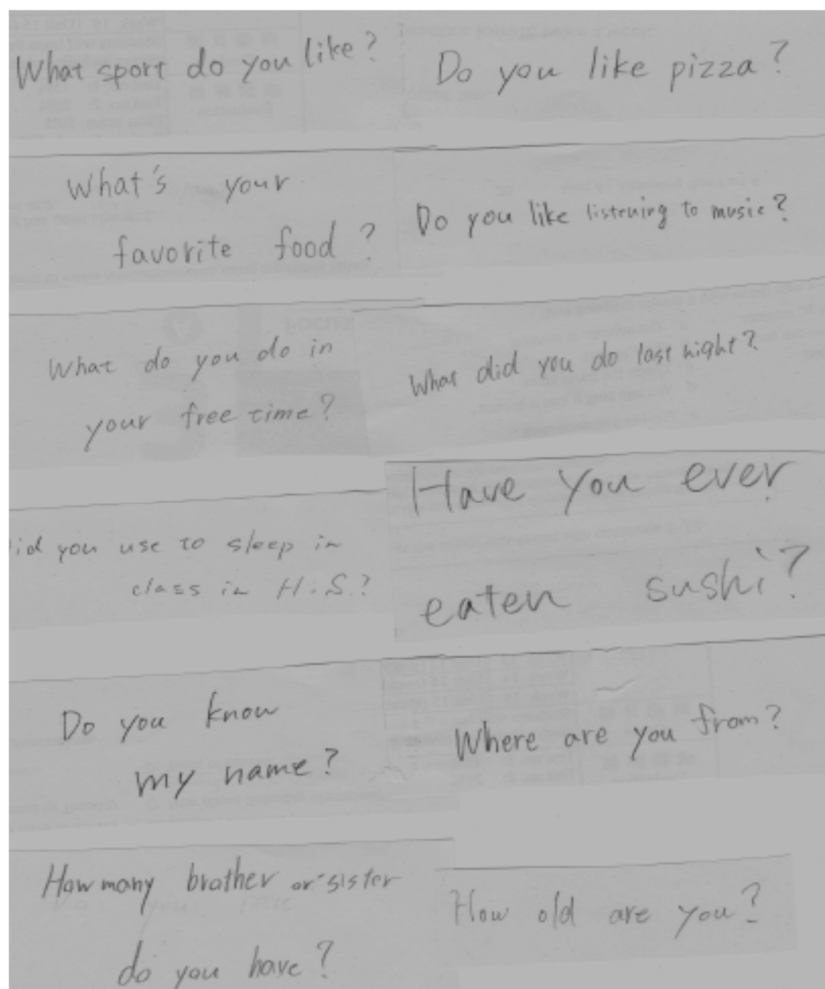 What sport do you like?
Do you like pizza?
What's your
favorite food?
Do you like listening to music?
What do you do in
your free time?
What did you do last night?
id you use to sleep in
class in H.S?
Have you ever
eaten sushi?
Do you know
my name?
Where are you from?
How many brother or sister
do you have?
How old are you?